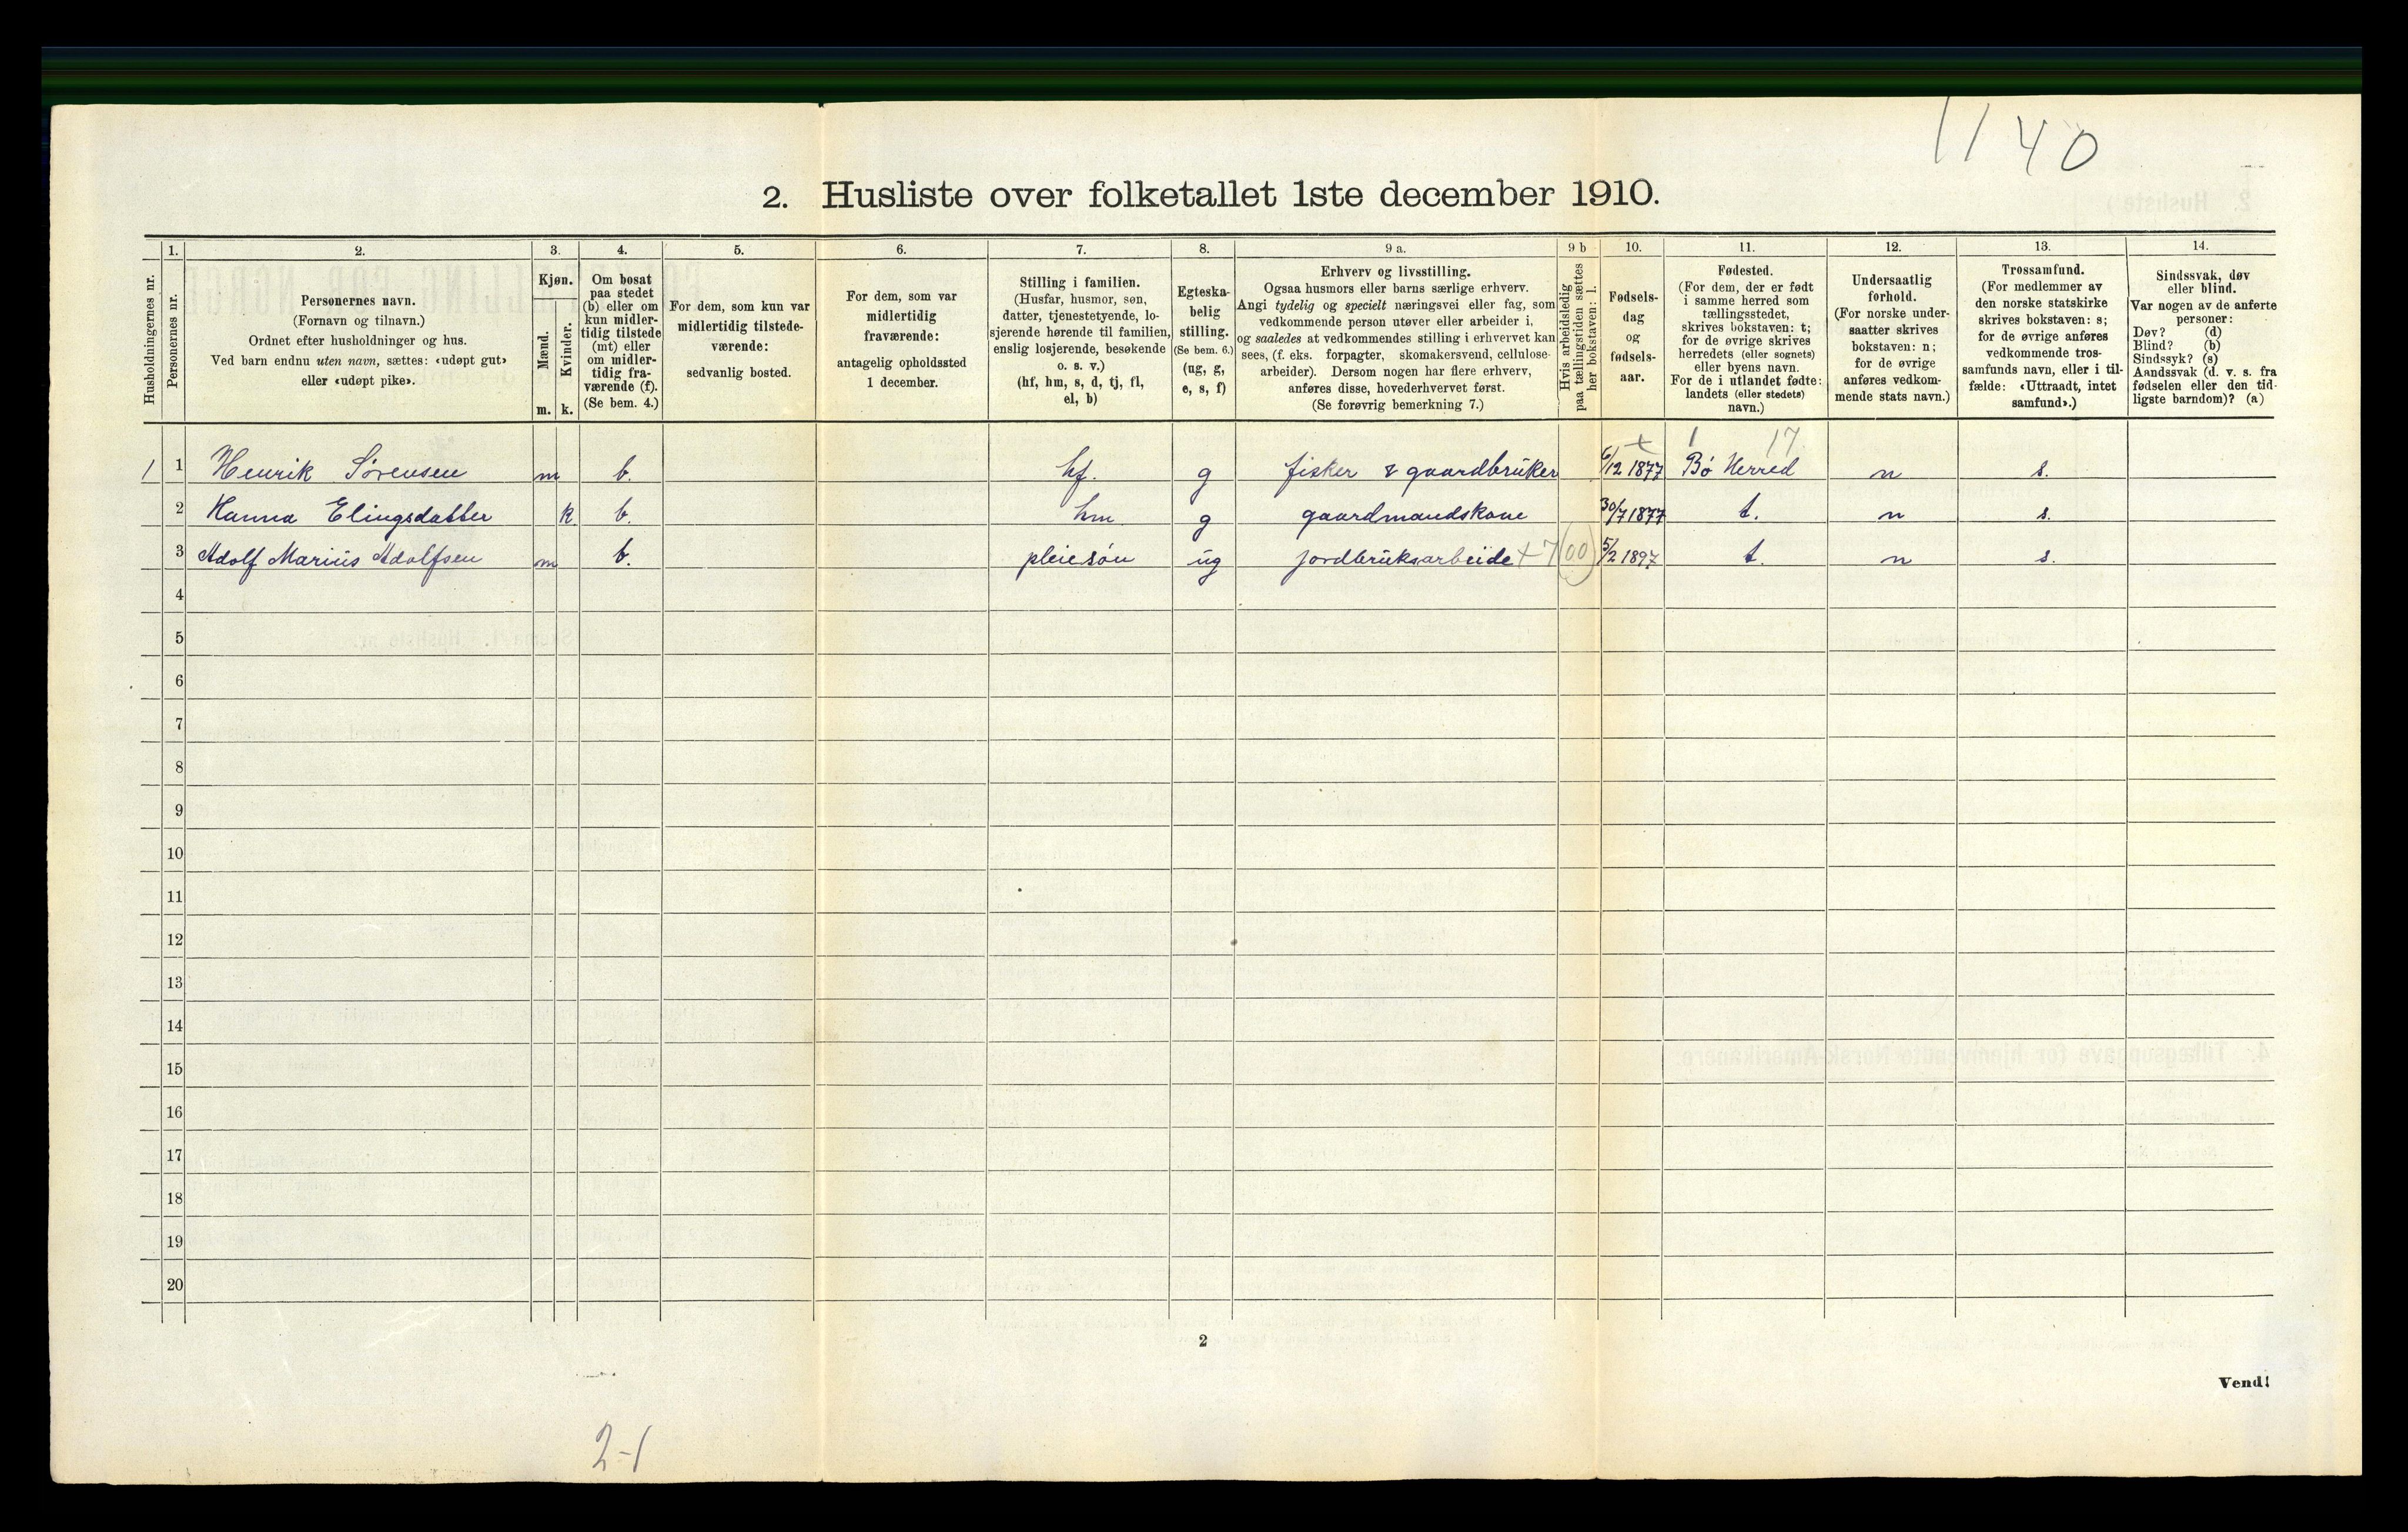 1140
2. Husliste over folketallet 1ste december 1910.
1. 2. 3. 4. 5. 6. 7. 8. 9 a. 9 b 10. 11. 12. 13. 14.
Husholdningernes nr.
Personernes nr.
Personernes navn.
(Fornavn og tilnavn.)
Ordnet efter husholdninger og hus.
Ved barn endnu uten navn, sættes: «udøpt gut»
eller «udøpt pike».
Kjøn.
Mænd.
Kvinder.
m. k.
Om bosat
paa stedet
(b) eller om
kun midler-
tidig tilstede
(mt) eller
om midler-
tidig fra-
værende (f).
(Se bem. 4.)
For dem, som kun var
midlertidig tilstede-
værende:
sedvanlig bosted.
For dem, som var
midlertidig
fraværende:
antagelig opholdssted
1 december.
Stilling i familien.
(Husfar, husmor, søn,
datter, tjenestetyende, lo-
sjerende hørende til familien,
enslig losjerende, besøkende
o. s. v.)
(hf, hm, s, d, tj, fl,
el, b)
Egteska-
belig
stilling.
(Se bem. 6.)
(ug, g,
e, s, f)
Erhverv og livsstilling.
Ogsaa husmors eller barns særlige erhverv.
Angi tydelig og specielt næringsvei eller fag, som
vedkommende person utøver eller arbeider i,
og saaledes at vedkommendes stilling i erhvervet kan
sees, (f. eks. forpagter, skomakersvend, cellulose-
arbeider). Dersom nogen har flere erhverv,
anføres disse, hovederhvervet først.
(Se forøvrig bemerkning 7.)
Hvis arbeidsledig
paa tællingstiden sættes
her bokstaven: l.
Fødsels-
dag
og
fødsels-
aar.
Fødested.
(For dem, der er født
i samme herred som
tællingsstedet,
skrives bokstaven: t;
for de øvrige skrives
herredets (eller sognets)
eller byens navn.
For de i utlandet fødte:
landets (eller stedets)
navn.)
Undersaatlig
forhold.
(For norske under-
saatter skrives
bokstaven: n;
for de øvrige
anføres vedkom-
mende stats navn.)
Trossamfund.
(For medlemmer av
den norske statskirke
skrives bokstaven: s;
for de øvrige anføres
vedkommende tros-
samfunds navn, eller i til-
fælde: «Uttraadt, intet
samfund».)
Sindssvak, døv
eller blind.
Var nogen av de anførte
personer:
Døv? (d)
Blind? (b)
Sindssyk? (s)
Aandssvak (d. v. s. fra
fødselen eller den tid-
ligste barndom)? (a)
+ 1 17
1 1 Henrik Sørensen m b. hf. g fisker & gaardbruker 6/12 1877 Bø Herred n s.
2 Hanna Elingsdatter k b. hm g gaardmandskone 30/7 1877 t. n s.
3 Adolf Marius Adolfsen m b. pleiesøn ug jordbruksarbeide +7(00) 5/2 1897 t. n s.
4
5
6
7
8
9
10
11
12
13
14
15
16
17
18
19
20
2
Vend!
2-1